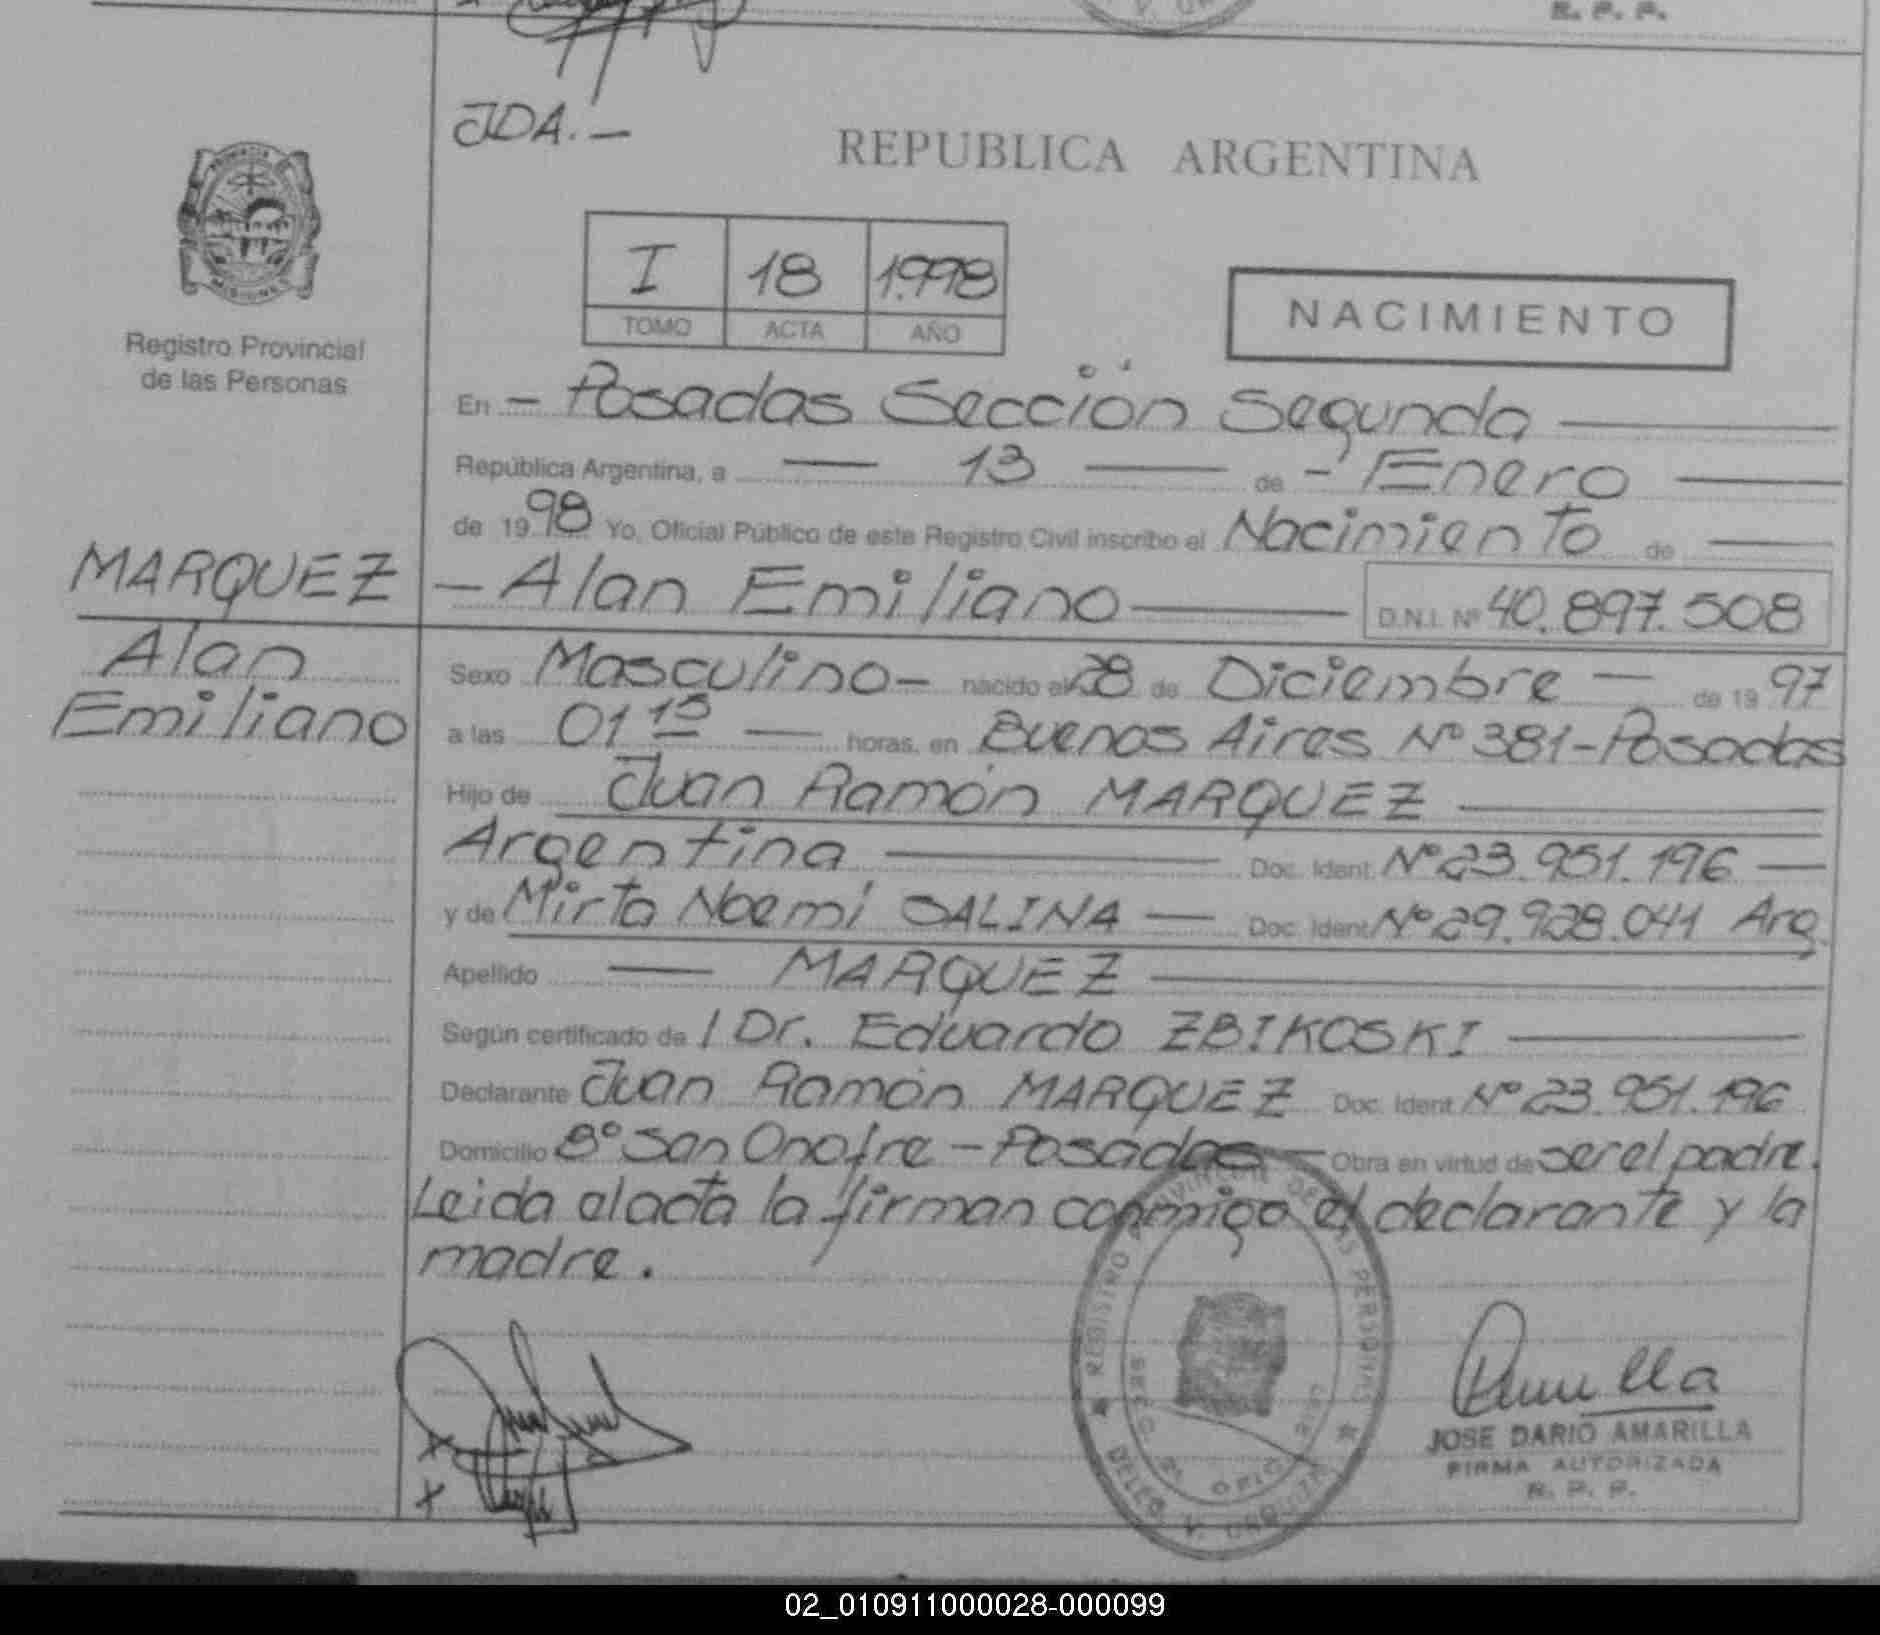 R. P. P.
JDA.—
REPUBLICA ARGENTINA
MISIONES
Registro Provincial
de las Personas
I 18 1.998
TOMO ACTA AÑO
NACIMIENTO
En - Posadas Sección Segunda
República Argentina, a — 13 — de - Enero
de 1998 Yo, Oficial Público de este Registro Civil inscribo el Nacimiento de —
MARQUEZ - Alan Emiliano — D.N.I. Nº 40.897.508
Alan
Emiliano
Sexo Masculino - nacido el 28 de Diciembre — de 1997
a las 01 15 — horas, en Buenos Aires Nº 381-Posadas
Hijo de Juan Ramón MARQUEZ
Argentina — Doc. Ident. Nº 23.951.196 —
y de Mirta Noemi SALINA — Doc. Ident. Nº 29.928.041 Arg.
Apellido — MARQUEZ
Según certificado de / Dr. Eduardo ZBIKOSKI
Declarante Juan Ramón MARQUEZ Doc. Ident. Nº 23.951.196
Domicilio Bº San Onofre - Posadas — Obra en virtud de ser el padre.
Leida el acta la firman conmigo el declarante y la
madre.
REGISTRO PROVINCIAL DE LAS PERSONAS
JOSE DARIO AMARILLA
FIRMA AUTORIZADA
R. P. P.
02_010911000028-000099